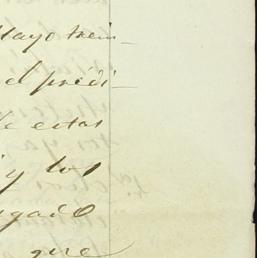 Mayo trein_
el prédi_
de estas
y los
gado
que